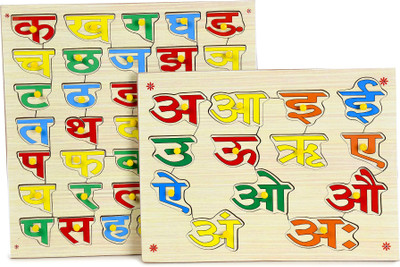 क ख ग घ ङ
च छ ज झ ञ
ट ठ ड
त थ द
प फ ब
य र ल
ष स ह
अ आ इ ई
उ ऊ ऋ ए
ऐ ओ औ
अं अः